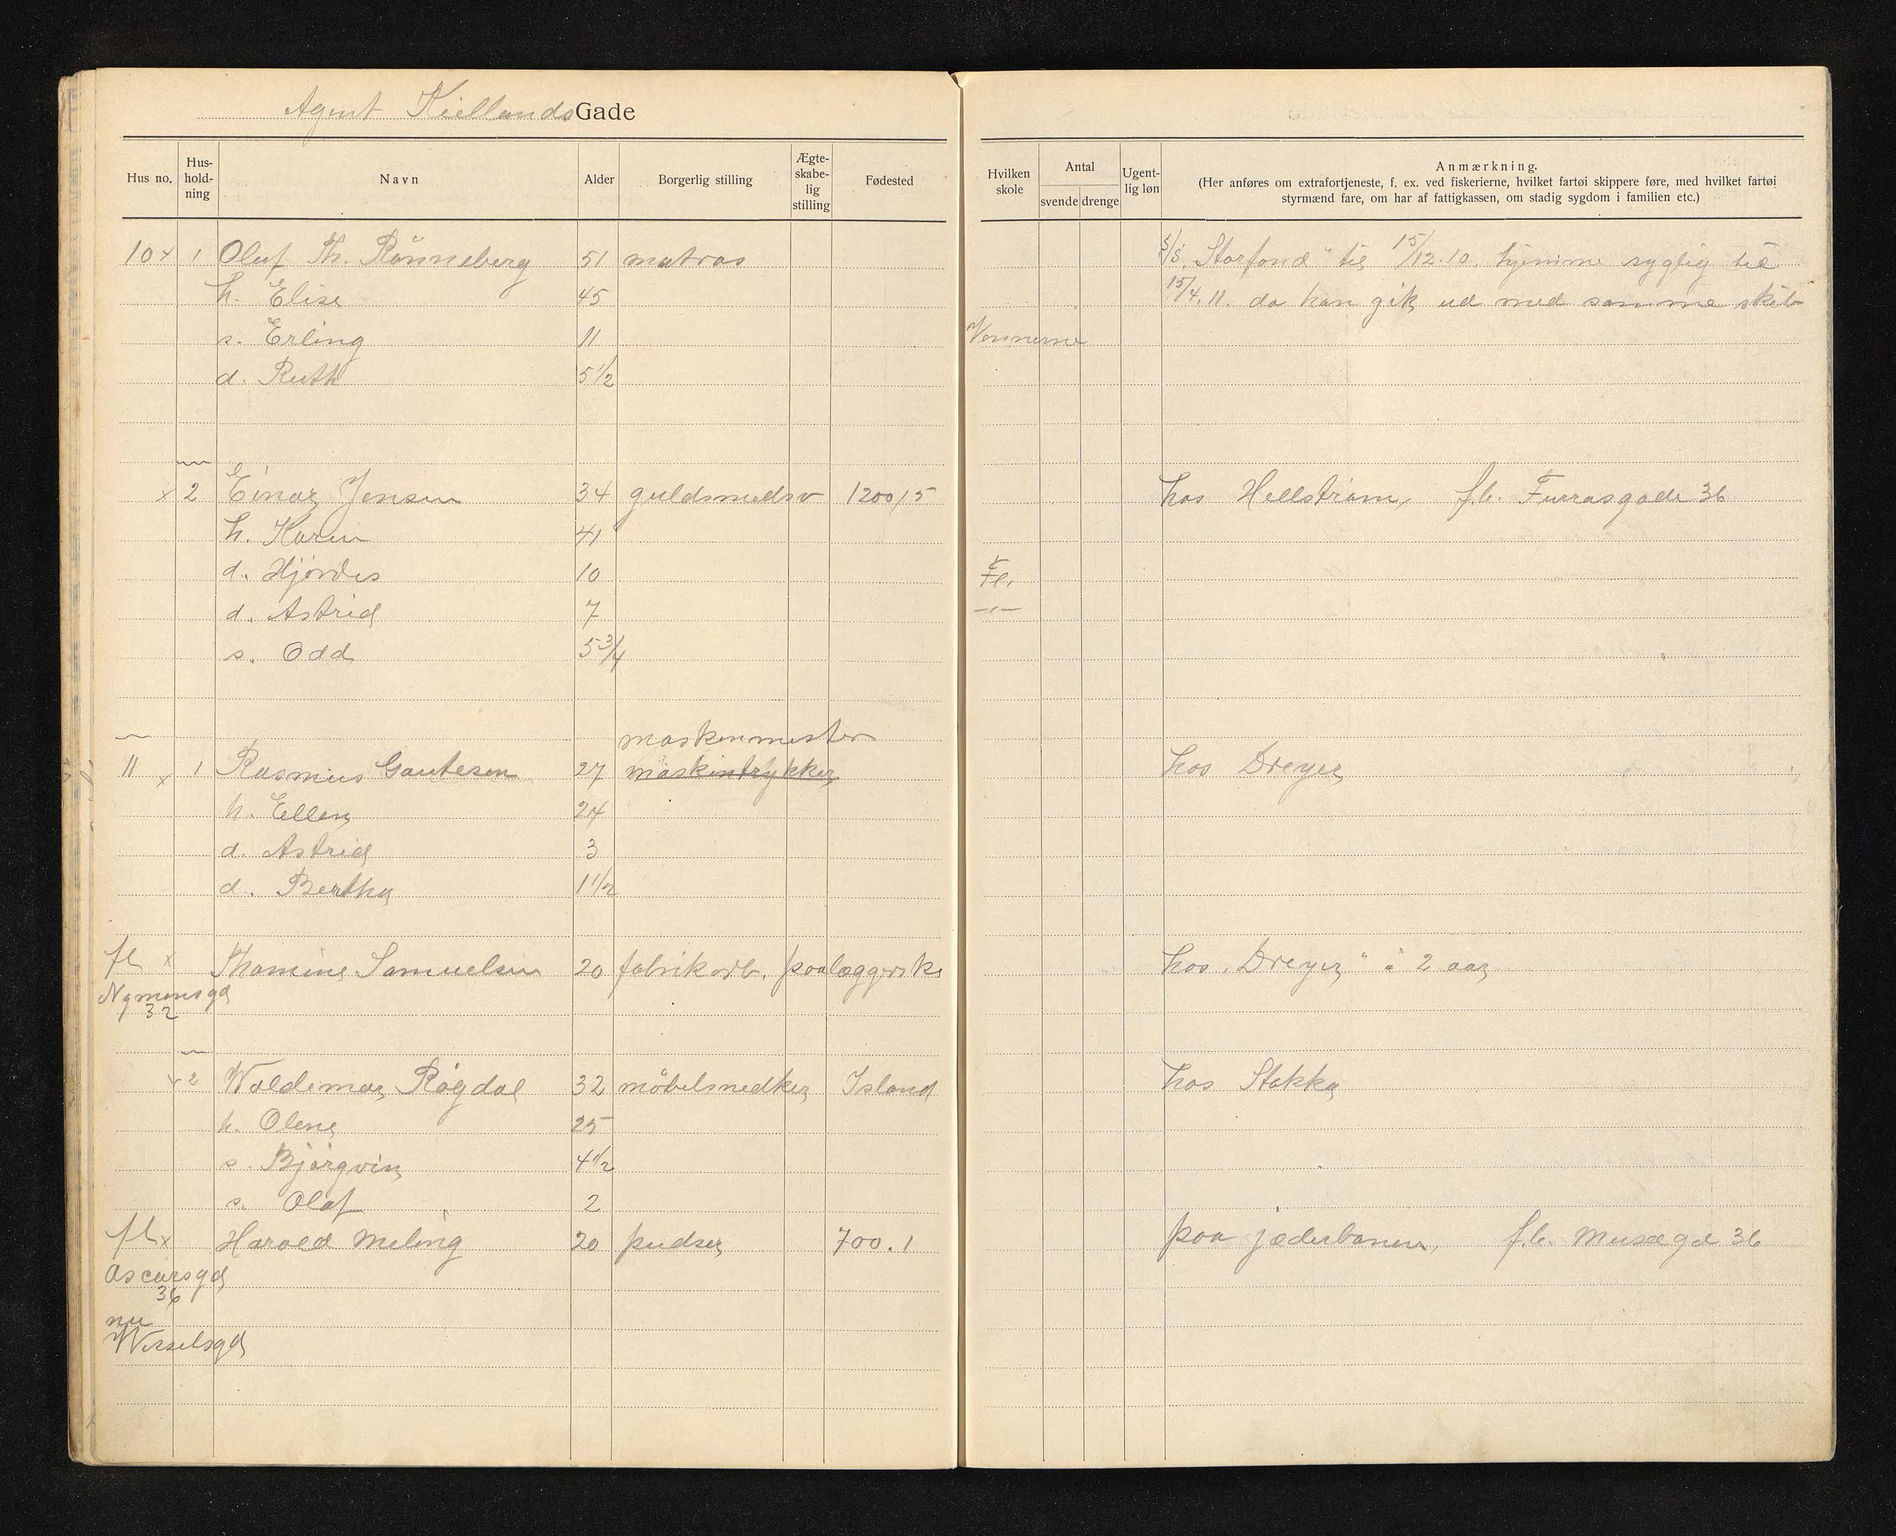 Agent Kiellands Gade
Hus no. Hus-hold-ning Navn Alder Borgerlig stilling Ægte-skabe-lig stilling Fødested Hvilken skole Antal svende drenge Ugent-lig løn Anmærkning.
(Her anføres om extrafortjeneste, f. ex. ved fiskerierne, hvilket fartøi skippere føre, med hvilket fartøi
styrmænd fare, om har af fattigkassen, om stadig sygdom i familien etc.)
10 x 1 Oluf Th. Rönneberg 51 matros S/S. "Storfond" til 15/12.10. hjemme syglig til
h. Elise 45 15/4.11. da han gik ud med samme skib
s. Erling 11 Vennerne
d. Ruth 5 1/2
x 2 Einar Jensen 34 guldsmedsv 1200/5 hos Hellström, f.b. Furrasgade 36
h. Karin 41
d. Hjördis 10 Fl.
d. Astrid 7 -"-
s. Odd 5 3/4
maskinmester
11 x 1 Rasmus Gautesen 27 maskintrykker hos Dreyer
h. Ellen 24
d. Astrid 3
d. Bertha 1 1/2
fl x Thomine Samuelsen 20 fabrikarb. paalæggerske hos "Dreyer" i 2 aar
Nymansgd
32
x 2 Waldemar Røgdal 32 möbelsnedker Island hos Stokka
h. Olene 25
s. Bjørgvin 4 1/2
s. Olaf 2
fl x Harald Meling 20 pudser 700.1 paa jæderbanen, f.b. Museegd 36
Oscarsgd
36
nu
Wesselsgd